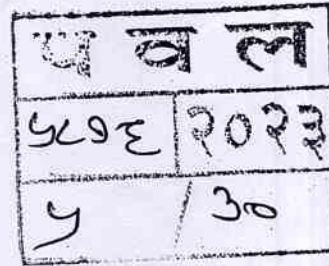 प व ल
५८१६ २०२३
५ / ३०